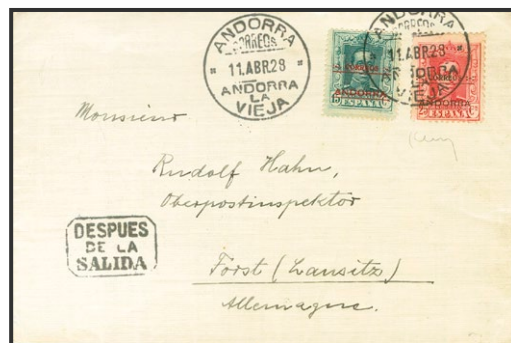 ANDORRA
CORREOS
11.ABR.28
ANDORRA
LA
VIEJA
ANDORRA
CORREOS
11.ABR.28
ANDORRA
LA
VIEJA
CORREOS
ANDORRA
15 ESPAÑA
CORREOS
ANDORRA
ESPAÑA
Monsieur
Rudolf Hahn,
Oberpostinspektor
DESPUES
DE LA
SALIDA
Forst (Lausitz)
Allemagne.